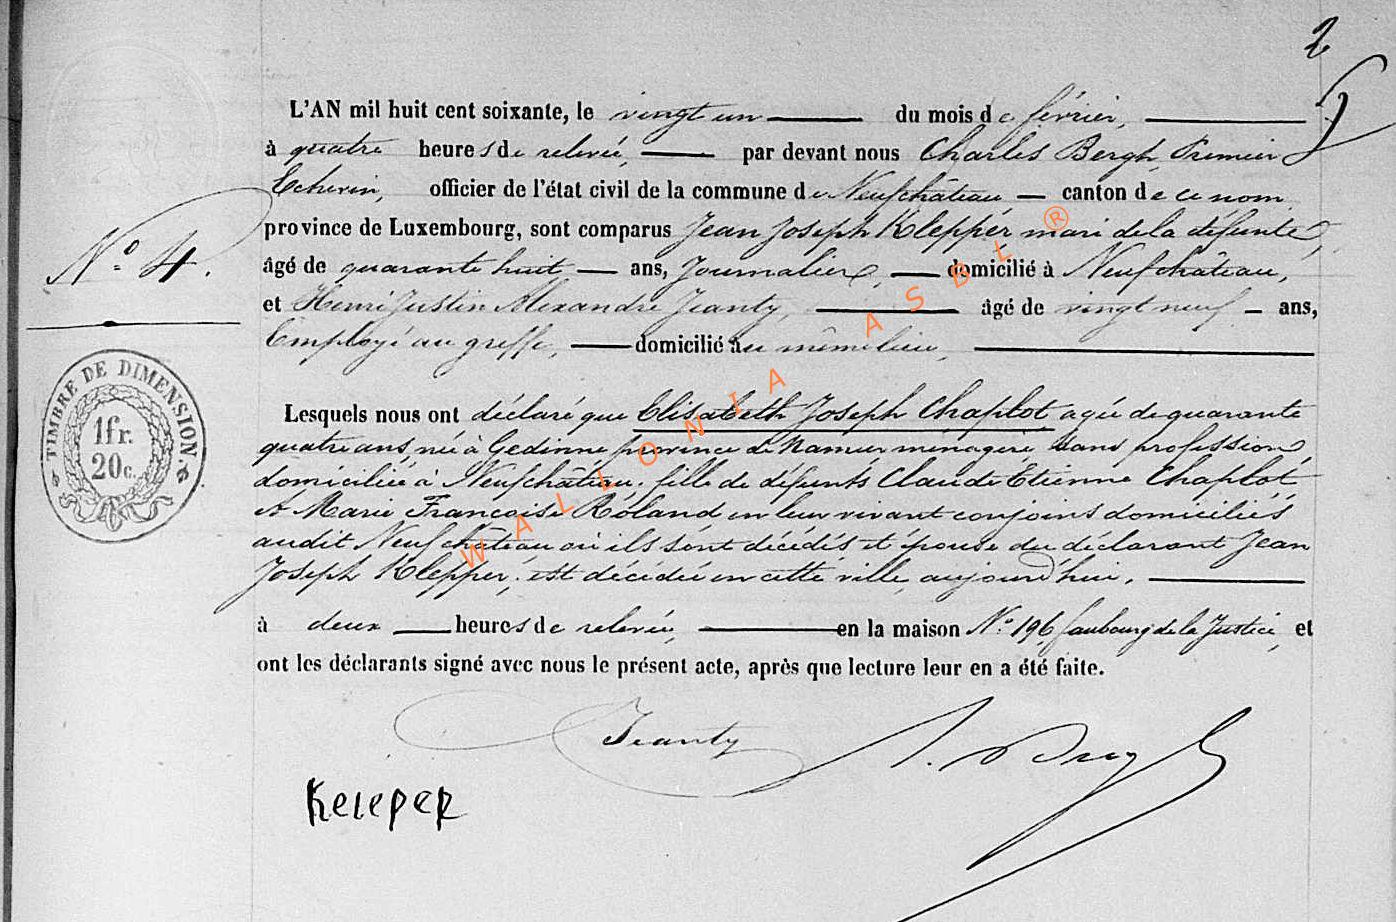 2
L'AN mil huit cent soixante, le vingt un du mois de février,
à quatre heures de relevée, par devant nous Charles Bergh, Premier
Echevin, officier de l'état civil de la commune de Neufchâteau canton de ce nom
province de Luxembourg, sont comparus Jean Joseph Klepper mari de la défunte,
N.° 4.
âgé de quarante huit ans, Journalier, domicilié à Neufchâteau,
et Henri Justin Alexandre Jeanty, âgé de vingt neuf ans,
Employé au greffe, domicilié au même lieu,
TIMBRE DE DIMENSION
1 fr.
20 c.
Lesquels nous ont déclaré que Elisabeth Joseph Chaplot agée de quarante
quatre ans, née à Gedinne province de Namur ménagère sans profession,
domiciliée à Neufchâteau, fille de défunts Claude Etienne Chaplot
et Marie Françoise Roland en leur vivant conjoins domiciliés
audit Neufchâteau où ils sont décédés et épouse du déclarant Jean
Joseph Klepper, est décédée en cette ville, aujourd'hui,
à deux heures de relevée, en la maison N.° 196 faubourg de la Justice, et
ont les déclarants signé avec nous le présent acte, après que lecture leur en a été faite.
Jeanty
WALLONIA ASBL ®